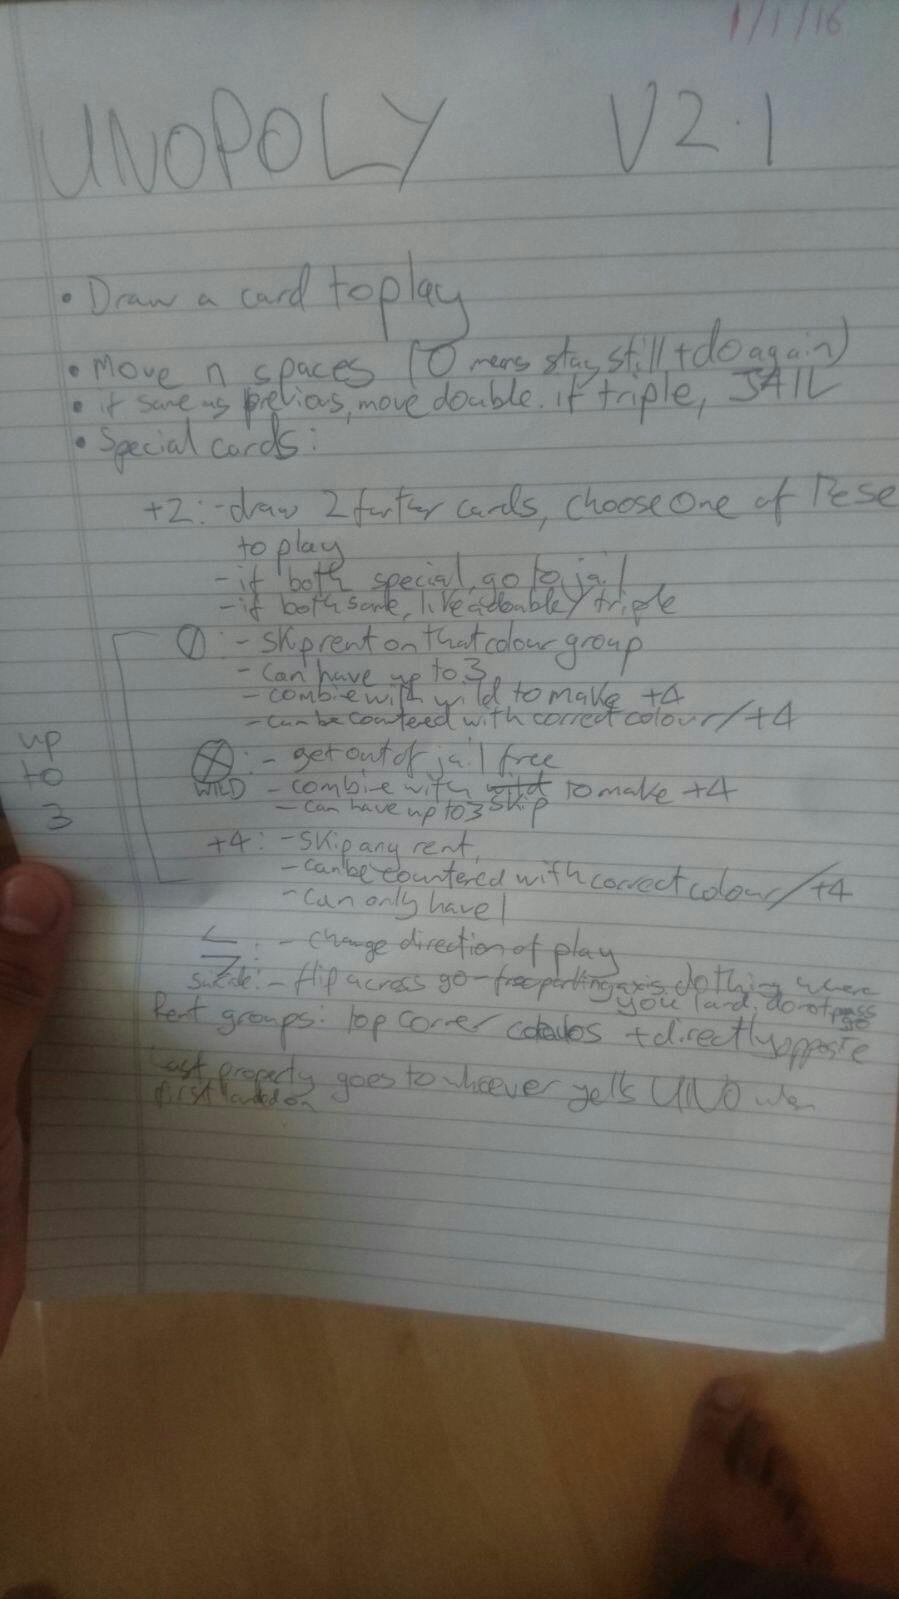 1/1/16
UNOPOLY V2.1
• Draw a card to play
• Move n spaces (0 means stay still + do again)
• if same as previous, move double. if triple, JAIL
• Special cards:
+2: - draw 2 further cards, choose one of these
to play
- if both special, go to jail
- if both same, like a double/triple
- skip rent on that colour group
- can have up to 3
- combine with wild to make +4
- can be countered with correct colour/+4
up
to
3
: - get out of jail free
WILD - combine with skip to make +4
- can have up to 3
+4: - skip any rent,
- can be countered with correct colour/+4
- can only have 1
: - change direction of play
- flip across go-free parking axis, do thing where
you land, do not pass
go
Rent groups: top corner + directly opposite
Last property goes to whoever yells UNO when
first landed on